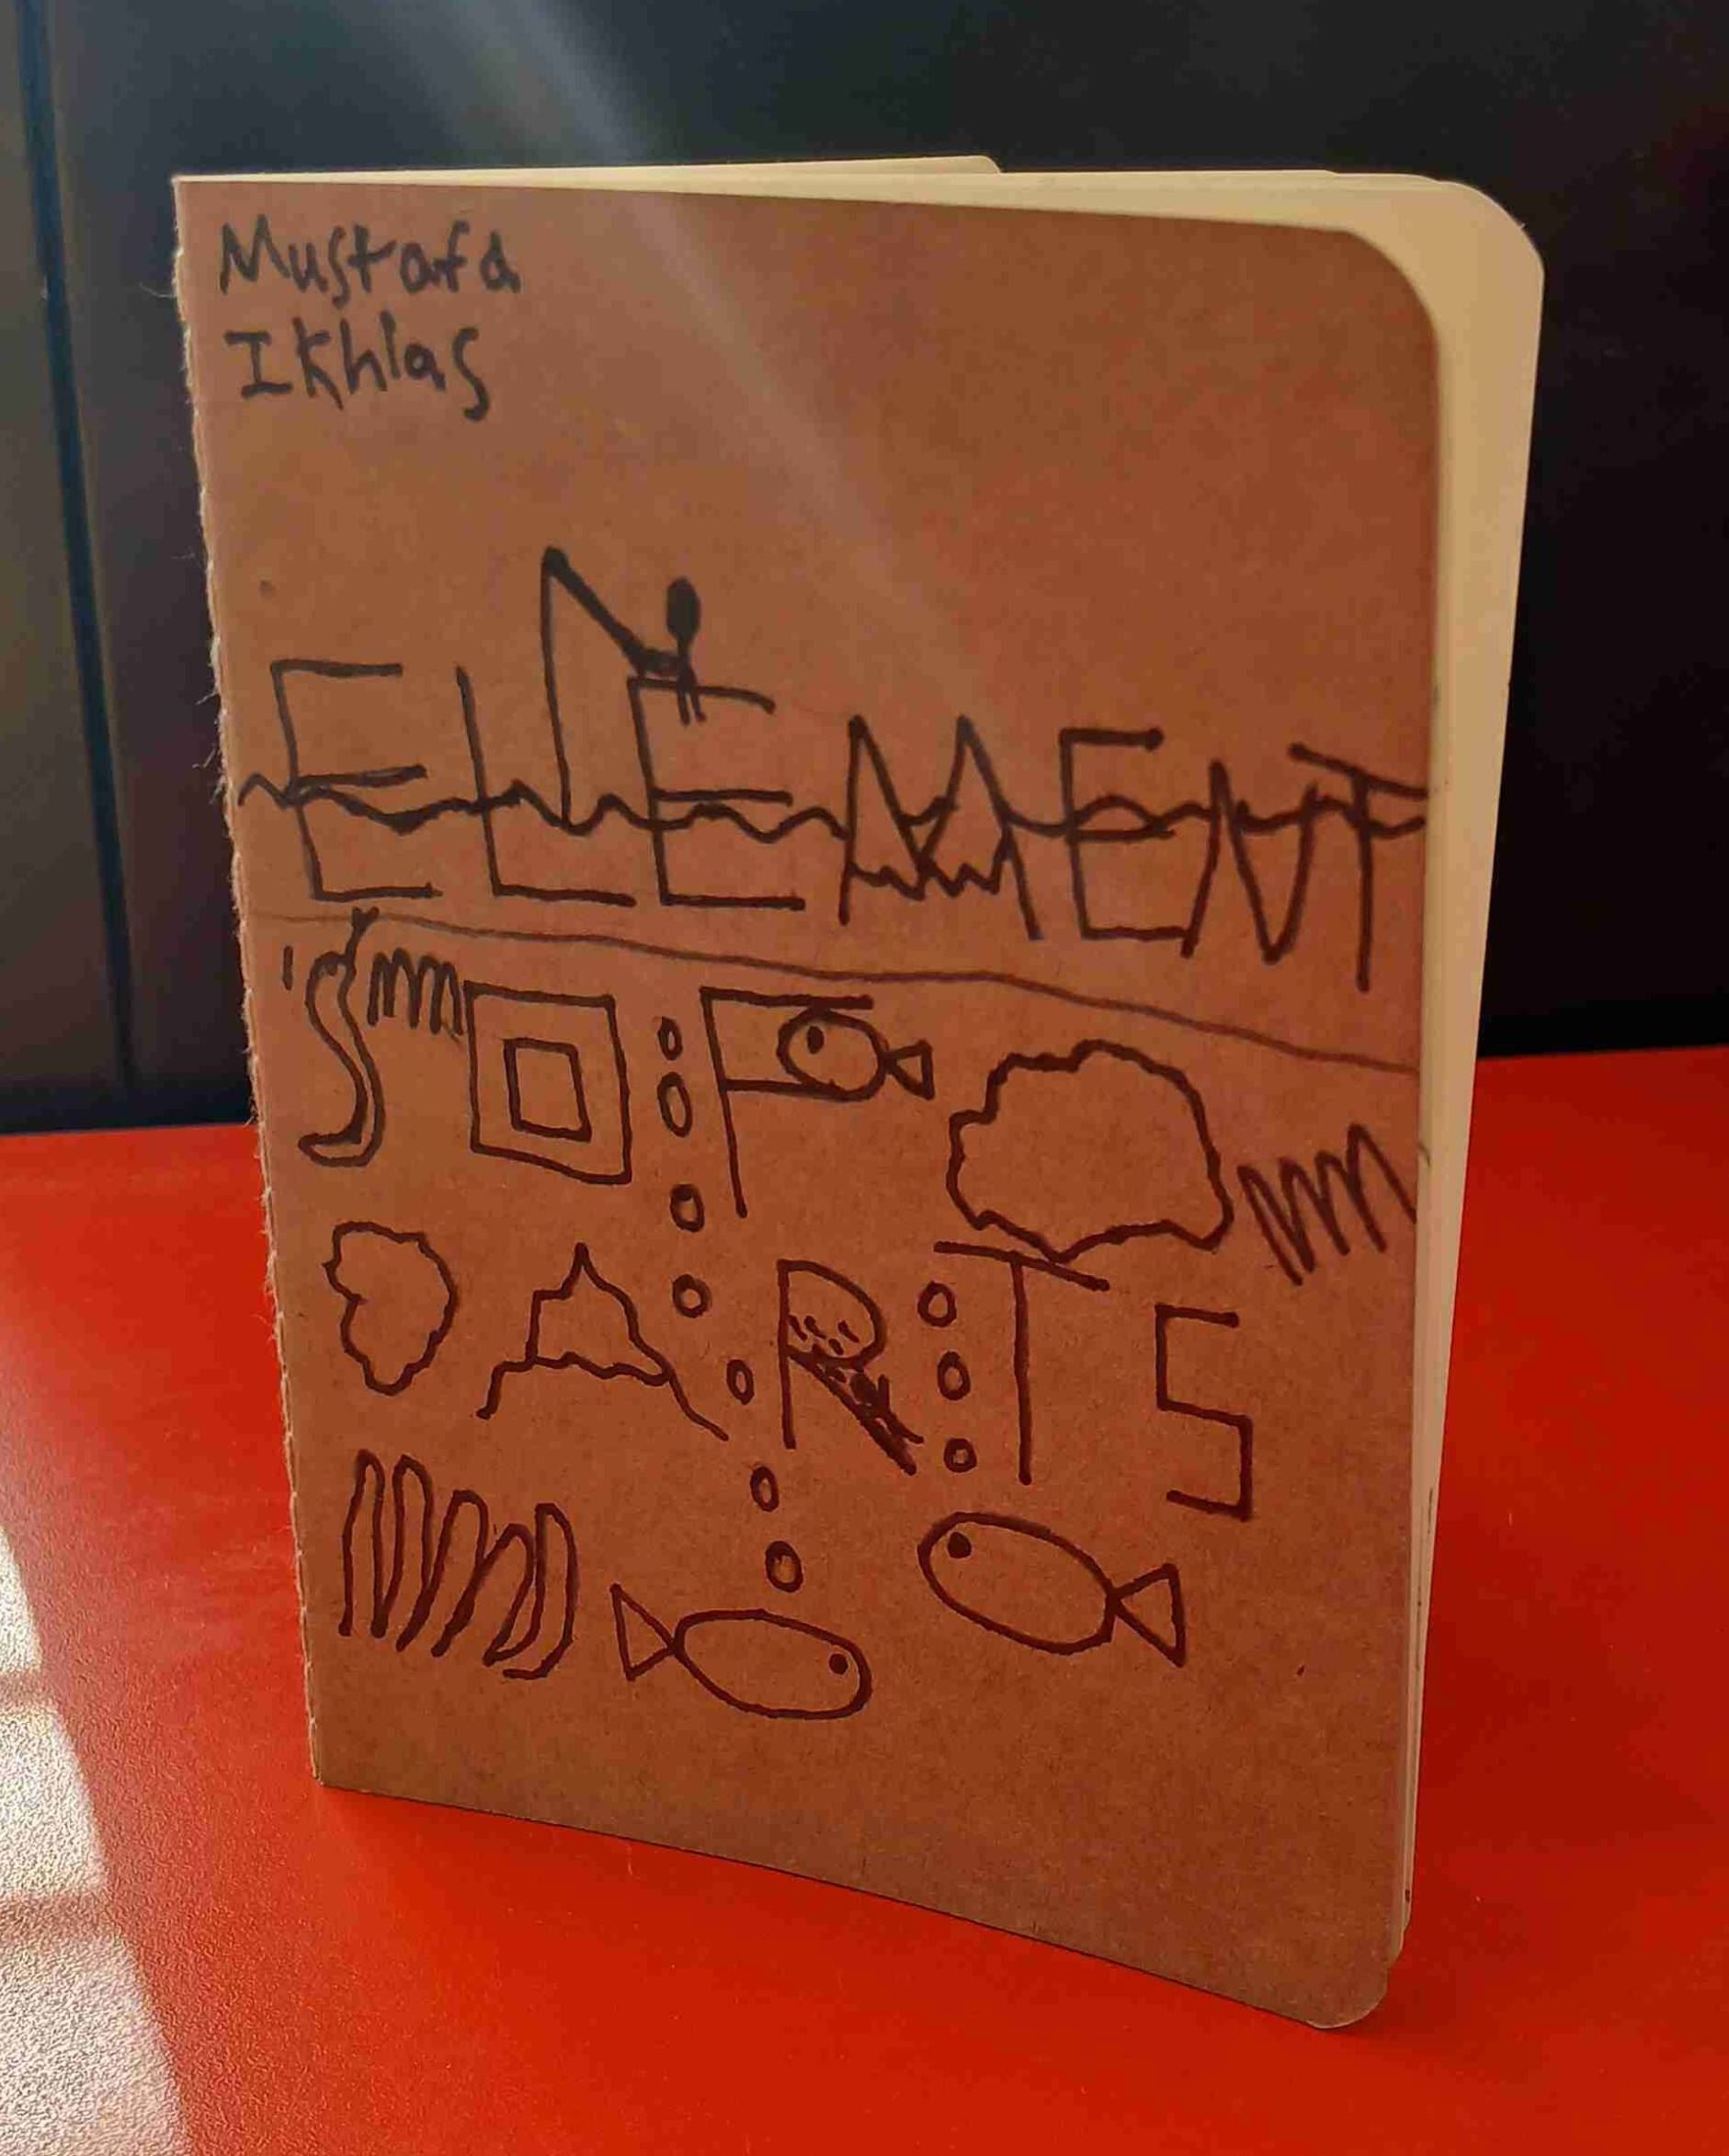 Mustafa
Ikhlas
ELEMENT
'S OF
ARTS